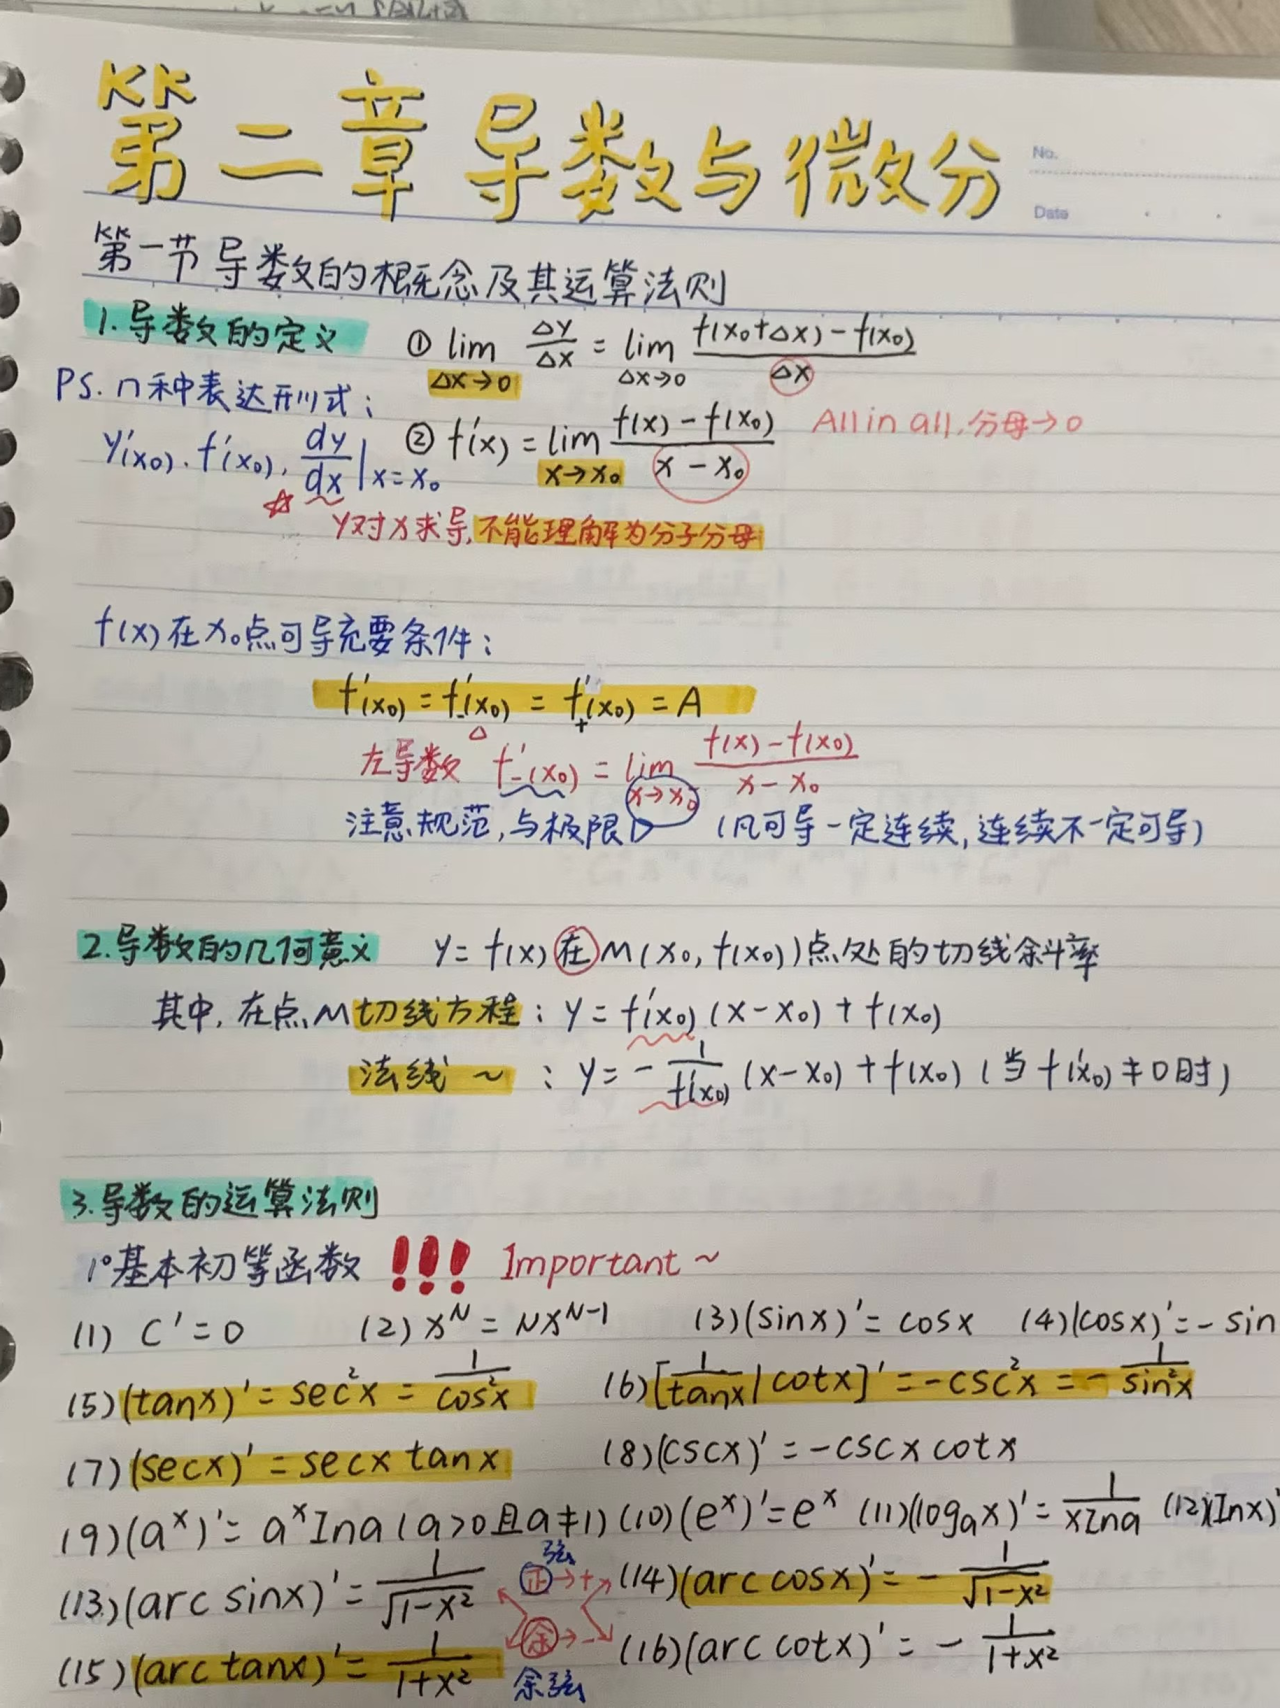 第二章 导数与微分
No.
Date
第一节 导数的概念及其运算法则
1.导数的定义 ① lim Δx→0 Δy/Δx = lim Δx→0 f(x₀+Δx)-f(x₀)/Δx
PS. n种表达形式:
② f'(x) = lim x→x₀ f(x)-f(x₀)/x-x₀ All in all,分母→0
y'(x₀). f'(x₀). dy/dx|x=x₀
☆ y对x求导,不能理解为分子分母
f(x)在x₀点可导充要条件:
f'(x₀) = f'₋(x₀) = f'₊(x₀) = A
左导数 f'₋(x₀) = lim x→x₀⁻ f(x)-f(x₀)/x-x₀
注意规范,与极限 (凡可导一定连续,连续不一定可导)
2.导数的几何意义 y=f(x)在M(x₀,f(x₀))点处的切线斜率
其中,在点M切线方程: y=f'(x₀)(x-x₀)+f(x₀)
法线~: y=-1/f'(x₀)(x-x₀)+f(x₀)(当f'(x₀)≠0时)
3.导数的运算法则
1°基本初等函数 !!! Important~
(1) C'=0 (2) x^N = Nx^N-1 (3)(sinx)'=cosx (4)(cosx)'=-sin
(5)(tanx)'=sec²x=1/cos²x (6)[1/tanx|cotx]'=-csc²x=-1/sin²x
(7)(secx)'=secx tanx (8)(cscx)'=-cscx cotx
(9)(a^x)'=a^x lna(a>0且a≠1) (10)(e^x)'=e^x (11)(logₐx)'=1/xlna (12)(lnx)'
(13)(arc sinx)'=1/√1-x² 弦 正→+ (14)(arc cosx)'=-1/√1-x²
余→- (16)(arc cotx)'=-1/1+x²
(15)(arc tanx)'=1/1+x² 余弦